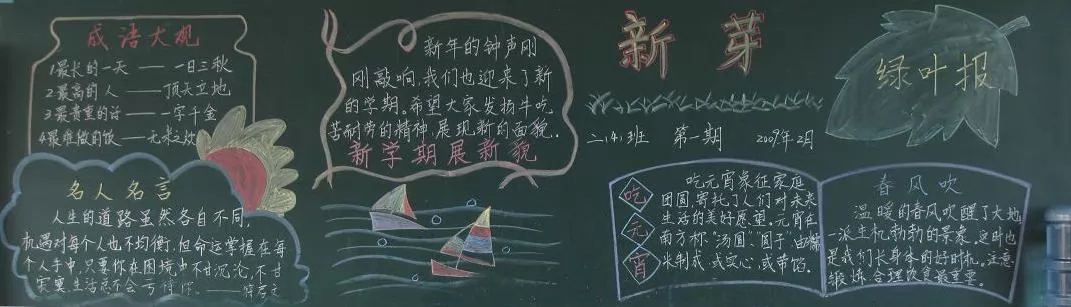 成语大观
1最长的一天——一日三秋
2最高的人——顶天立地
3最贵重的话——一字千金
4最难做的饭——无米之炊
名人名言
人生的道路虽然各自不同，
机遇对每个人也不均衡，但命运掌握在每
个人手中，只要你在困境中不甘沉沦，不甘
寂寞生活总不会亏待你。——
新年的钟声刚
刚敲响，我们也迎来了新
的学期。希望大家发扬牛吃
苦耐劳的精神，展现新的面貌..
新学期展新貌
新芽
二.(4.)班 第一期 2009年2月
绿叶报
吃元宵
吃元宵象征家庭
团圆，寄托了人们对未来
生活的美好愿望。元宵在
南方称“汤圆”“圆子”，由糯
米制成，或实心，或带馅。
春风吹
温暖的春风吹醒了大地
一派生机勃勃的景象。这时也
是我们长身体的好时机。注意
锻炼，合理饮食最重要。